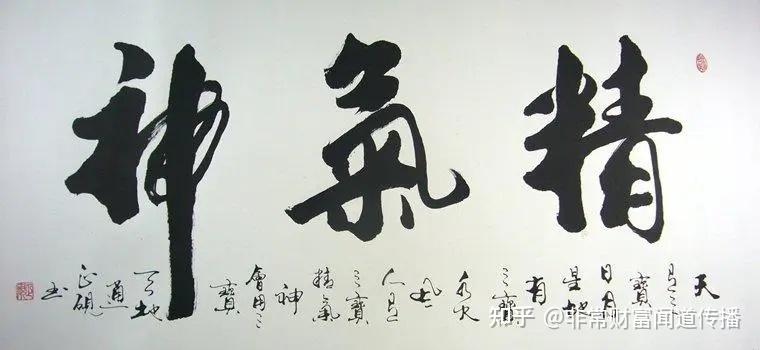 精氣神
天有三寶日月星地有三寶水火風人有三寶精氣神會用三寶天地通
正硯书
知乎 @非常财富闻道传播